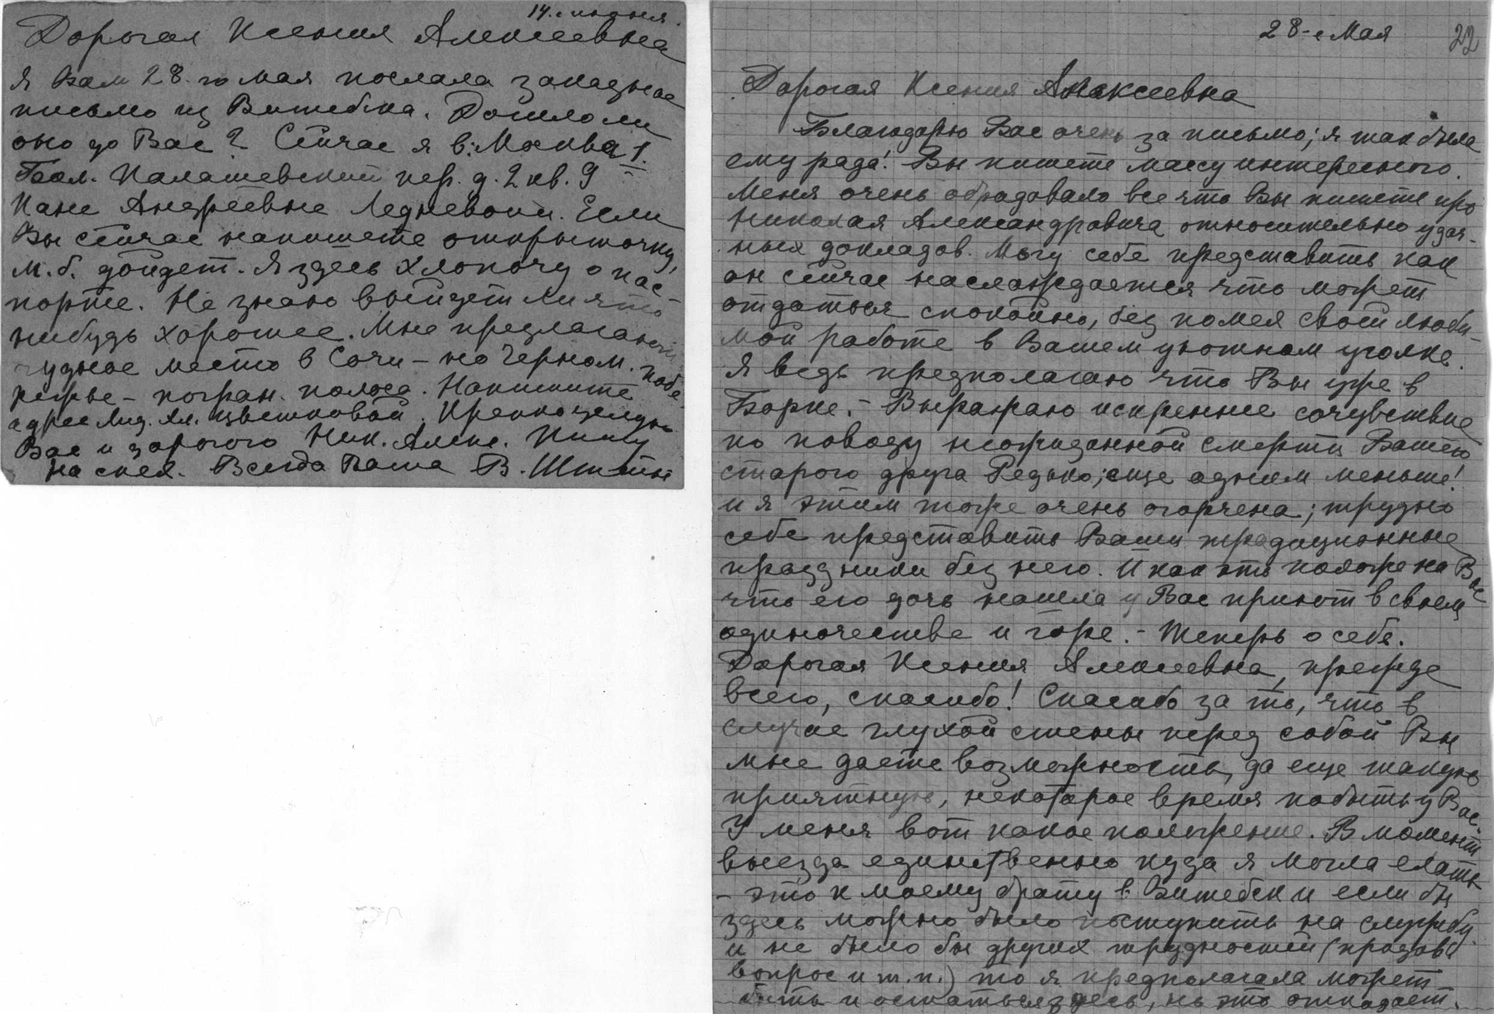 14. июня.
Дорогая Ксения Алексеевна
Я Вам 28-го мая послала заказное
письмо из Витебска. Дошло ли
оно до Вас? Сейчас я в Москва 1.
Бол. Палашевский пер. д. 2 кв. 9
Андреевне Ледневой. Если
Вы сейчас напишете открыточку,
м. б. дойдет. Я здесь хлопочу о пас-
порте. Не знаю выйдет ли что
нибудь хорошее. Мне предлагают
чудное место в Сочи – но Черном. побе-
режье – погран. полоса. Напишите
адрес Лид. Ал. Цветковой. Крепко целую
Вас и дорогого Ник. Алекс. Пишу
на спех. Всегда Ваша В. Штейн
28-е Мая
22
Дорогая Ксения Алексеевна
Благодарю Вас очень за письмо; я так была
ему рада! Вы пишете массу интересного.
Меня очень обрадовало все что Вы пишете про
Николая Александровича относительно удач-
ных докладов. Могу себе представить как
он сейчас наслаждается что может
отдаться спокойно, без помех своей люби-
мой работе в Вашем уютном уголке.
Я ведь предполагаю что Вы уже в
Борке. – Выражаю искреннее сочувствие
по поводу неожиданной смерти Вашего
старого друга Редько; еще одним меньше!
и я этим тоже очень огорчена; трудно
себе представить Ваши традиционные
праздники без него. И как это похоже на Вас
что его дочь нашла у Вас приют в своем
одиночестве и горе. – Теперь о себе.
Дорогая Ксения Алексеевна, прежде
всего, спасибо! Спасибо за то, что в
случае глухой стены перед собой Вы
мне даете возможность, да еще такую
приятную, некоторое время побыть у Вас.
У меня вот какое положение. В момент
выезда единственно куда я могла ехать
– это к моему брату в Витебск и если бы
здесь можно было поступить на службу
и не было бы других трудностей (
вопрос и т. п.) то я предполагала может
быть и остаться здесь, но это отпадает.